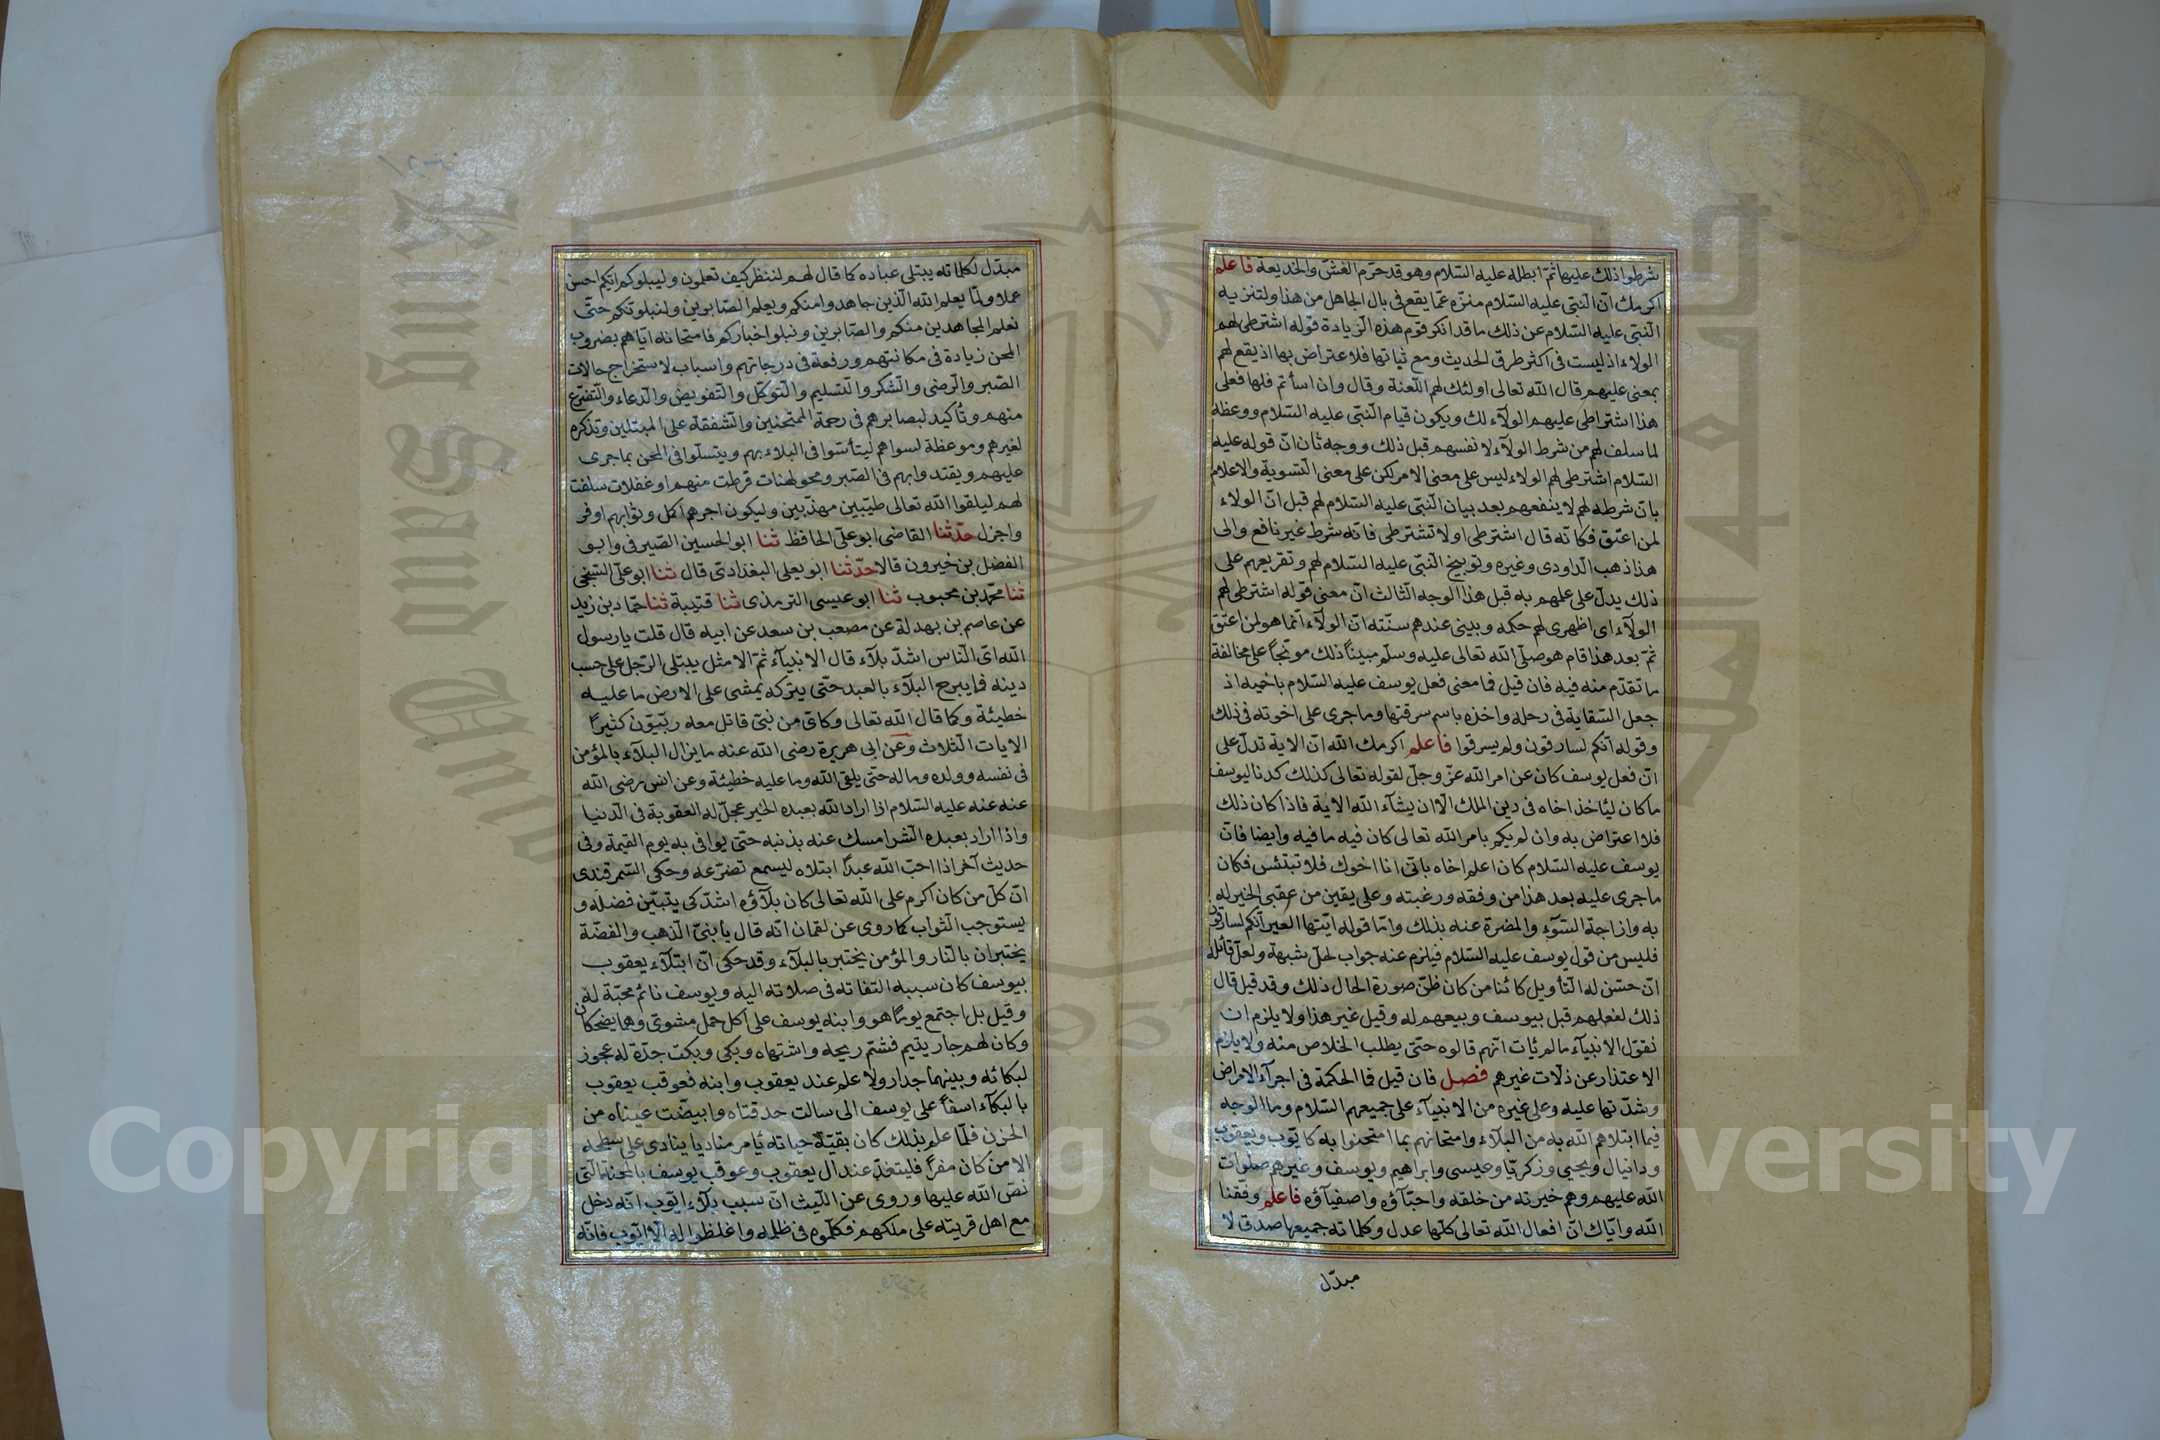 شرطوا ذلك عليها ثمّ ابطله عليه السّلام وهو قد حرّم الغشّ والخديعة فاعلم
اكرمك انّ النّبىّ عليه السّلام منزّه عمّا يقع فى بال الجاهل من هذا ولتنزيه
النّبىّ عليه السّلام عن ذلك ما قد انكر قوم هذه الزيادة قوله اشترطى لهم
الولاء اذ ليست فى اكثر طرق الحديث ومع ثباتها فلا اعتراض بها اذ يقع لهم
بمعنى عليهم قال الله تعالى اولئك لهم اللّعنة وقال وان اسأتم فلها فعلى
هذا اشترطى عليهم الولآء لك ويكون قيام النّبىّ عليه السّلام ووعظه
لما سلف لهم من شرط الولآء لانفسهم قبل ذلك ووجه ثان انّ قوله عليه
السّلام اشترطى لهم الولاء ليس على معنى الامر لكن على معنى التّسوية والاعلام
بانّ شرطه لهم لا ينفعهم بعد بيان النّبىّ عليه السّلام لهم قبل انّ الولاء
لمن اعتق فكانه قال اشترطى او لا تشترطى فانه شرط غير نافع والى
هذا ذهب الدّاودى وغيره وتوبيخ النّبىّ عليه السّلام لهم وتقريعهم على
ذلك يدلّ على علمهم به قبل هذا الوجه الثّالث انّ معنى قوله اشترطى لهم
الولآء اى اظهرى لهم حكمه وبينى عندهم سنّته انّ الولآء انّما هو لمن اعتق
ثمّ بعد هذا قام هو صلّى الله تعالى عليه وسلّم مبينًا ذلك موبّخًا على مخالفة
ما تقدّم منه فيه فان قيل فما معنى فعل يوسف عليه السّلام باخيه اذ
جعل السّقاية فى رحله واخذه باسم سرقتها وما جرى على اخوته فى ذلك
وقوله انّكم لسارقون ولم يسرقوا فاعلم اكرمك الله انّ الاية تدلّ على
انّ فعل يوسف كان عن امر الله عزّ وجلّ لقوله تعالى كذلك كدنا ليوسف
ما كان ليأخذ اخاه فى دين الملك الّا ان يشآء الله الاية فاذا كان ذلك
فلا اعتراض به وان لم يكن بامر الله تعالى كان فيه ما فيه وايضا فانّ
يوسف عليه السّلام كان اعلم اخاه بانّى انا اخوك فلا تبتئس فكان
ما جرى عليه بعد هذا من وفقه ورغبته وعلى يقين من عقبى الخير له
به وازاحة السّوء والمضرة عنه بذلك وامّا قوله ايّتها العير انّكم لسارقون
فليس من قول يوسف عليه السّلام فيلزم عنه جواب لحلّ شبهه ولعلّ قائله
ان حسّن له التّأويل كائنا من كان ظنّ صورة الحال ذلك وقد قيل قال
ذلك لفعلهم قبل بيوسف وبيعهم له وقيل غير هذا ولا يلزم ان
نقوّل الانبيآء ما لم يأت انّهم قالوه حتّى يطلب الخلاص منه ولا يلزم
الاعتذار عن زلّات غيرهم فصل فان قيل فما الحكمة فى اجرآء الامراض
وشدّتها عليه وعلى غيره من الانبيآء على جميعهم السّلام وما الوجه
فيما ابتلاهم الله به من البلآء وامتحانهم بما امتحنوا به كايّوب ويعقوب
ودانيال ويحيى وزكريّا وعيسى وابراهيم ويوسف وغيرهم صلوات
الله عليهم وهم خيرته من خلقه واحبّآؤه واصفيآؤه فاعلم وفّقنا
الله وايّاك انّ افعال الله تعالى كلّها عدل وكلماته جميعها صدق لا
مبدّل
مبدّل لكلماته يبتلى عباده كما قال لهم لننظر كيف تعملون وليبلوكم ايّكم احسن
عملا ولمّا يعلم الله الّذين جاهدوا منكم ويعلم الصّابرين ولنبلونّكم حتّى
نعلم المجاهدين منكم والصّابرين ونبلو اخباركم فامتحانه ايّاهم بضروب
المحن زيادة فى مكانتهم ورفعة فى درجاتهم واسباب لاستخراج حالات
الصّبر والرّضى والشّكر والتّسليم والتّوكّل والتّفويض والدّعاء والتّضرّع
منهم وتأكيد لبصائرهم فى رحمة الممتحنين والشّفقة على المبتلين وتذكره
لغيرهم وموعظة لسواهم ليتأسّوا فى البلاء بهم ويتسلّوا فى المحن بما جرى
عليهم ويقتدوا بهم فى الصّبر ومحو لهنات فرطت منهم او غفلات سلفت
لهم ليلقوا الله تعالى طيّبين مهذّبين وليكون اجرهم اكمل وثوابهم اوفر
واجزل حدّثنا القاضى ابو علىّ الحافظ ثنا ابو الحسين الصّيرفى وابو
الفضل بن خيرون قالا حدّثنا ابو يعلى البغدادىّ قال ثنا ابو علىّ السّنجى
ثنا محمّد بن محبوب ثنا ابو عيسى الترمذى ثنا قتيبة ثنا حمّاد بن زيد
عن عاصم بن بهدلة عن مصعب بن سعد عن ابيه قال قلت يا رسول
الله اىّ النّاس اشدّ بلآء قال الانبيآء ثمّ الامثل يبتلى الرّجل على حسب
دينه فما يبرح البلآء بالعبد حتّى يتركه يمشى على الارض ما عليه
خطيئة وكما قال الله تعالى وكاىّ من نبىّ قاتل معه ربّيّون كثيرًا
الايات الثّلاث وعن ابى هريرة رضى الله عنه ما يزال البلآء بالمؤمن
فى نفسه وولده وماله حتّى يلقى الله وما عليه خطيئة وعن انس رضى الله
عنه عنه عليه السّلام اذا اراد الله بعبده الخير عجّل له العقوبة فى الدّنيا
واذا اراد بعبده الشّر امسك عنه بذنبه حتّى يوافى به يوم القيمة وفى
حديث آخر اذا احبّ الله عبدًا ابتلاه ليسمع تضرّعه وحكى السّمرقندى
انّ كلّ من كان اكرم على الله تعالى كان بلآؤه اشدّ كى يتبيّن فضله و
يستوجب الثّواب كما روى عن لقمان انّه قال يا بنىّ الذّهب والفضّة
يختبران بالنّار والمؤمن يختبر بالبلآء وقد حكى انّ ابتلآء يعقوب
بيوسف كان سببه التفاته فى صلاته اليه ويوسف نائم محبّة له
وقيل بل اجتمع يومًا هو وابنه يوسف على اكل حمل مشوىّ وهما يضحكان
وكان لهم جار يتيم فشمّ ريحه واشتهاه وبكى وبكت جدّة له عجوز
لبكائه وبينهما جدار ولا علم عند يعقوب وابنه فعوقب يعقوب
بالبكآء اسفًا على يوسف الى سالت حدقتاه وابيضّت عيناه من
الحزن فلمّا علم بذلك كان بقيّة حياته يأمر مناديا ينادى على سطحه
الا من كان مفطرًا فليتغدّ عند ال يعقوب وعوقب يوسف بالمحنة الّتى
نصّ الله عليها وروى عن اللّيث انّ سبب بلآء ايّوب انّه دخل
مع اهل قريته على ملكهم فكلّموه فى ظلمه واغلظوا له الّا ايّوب فانّه
Copyright © King Saud University